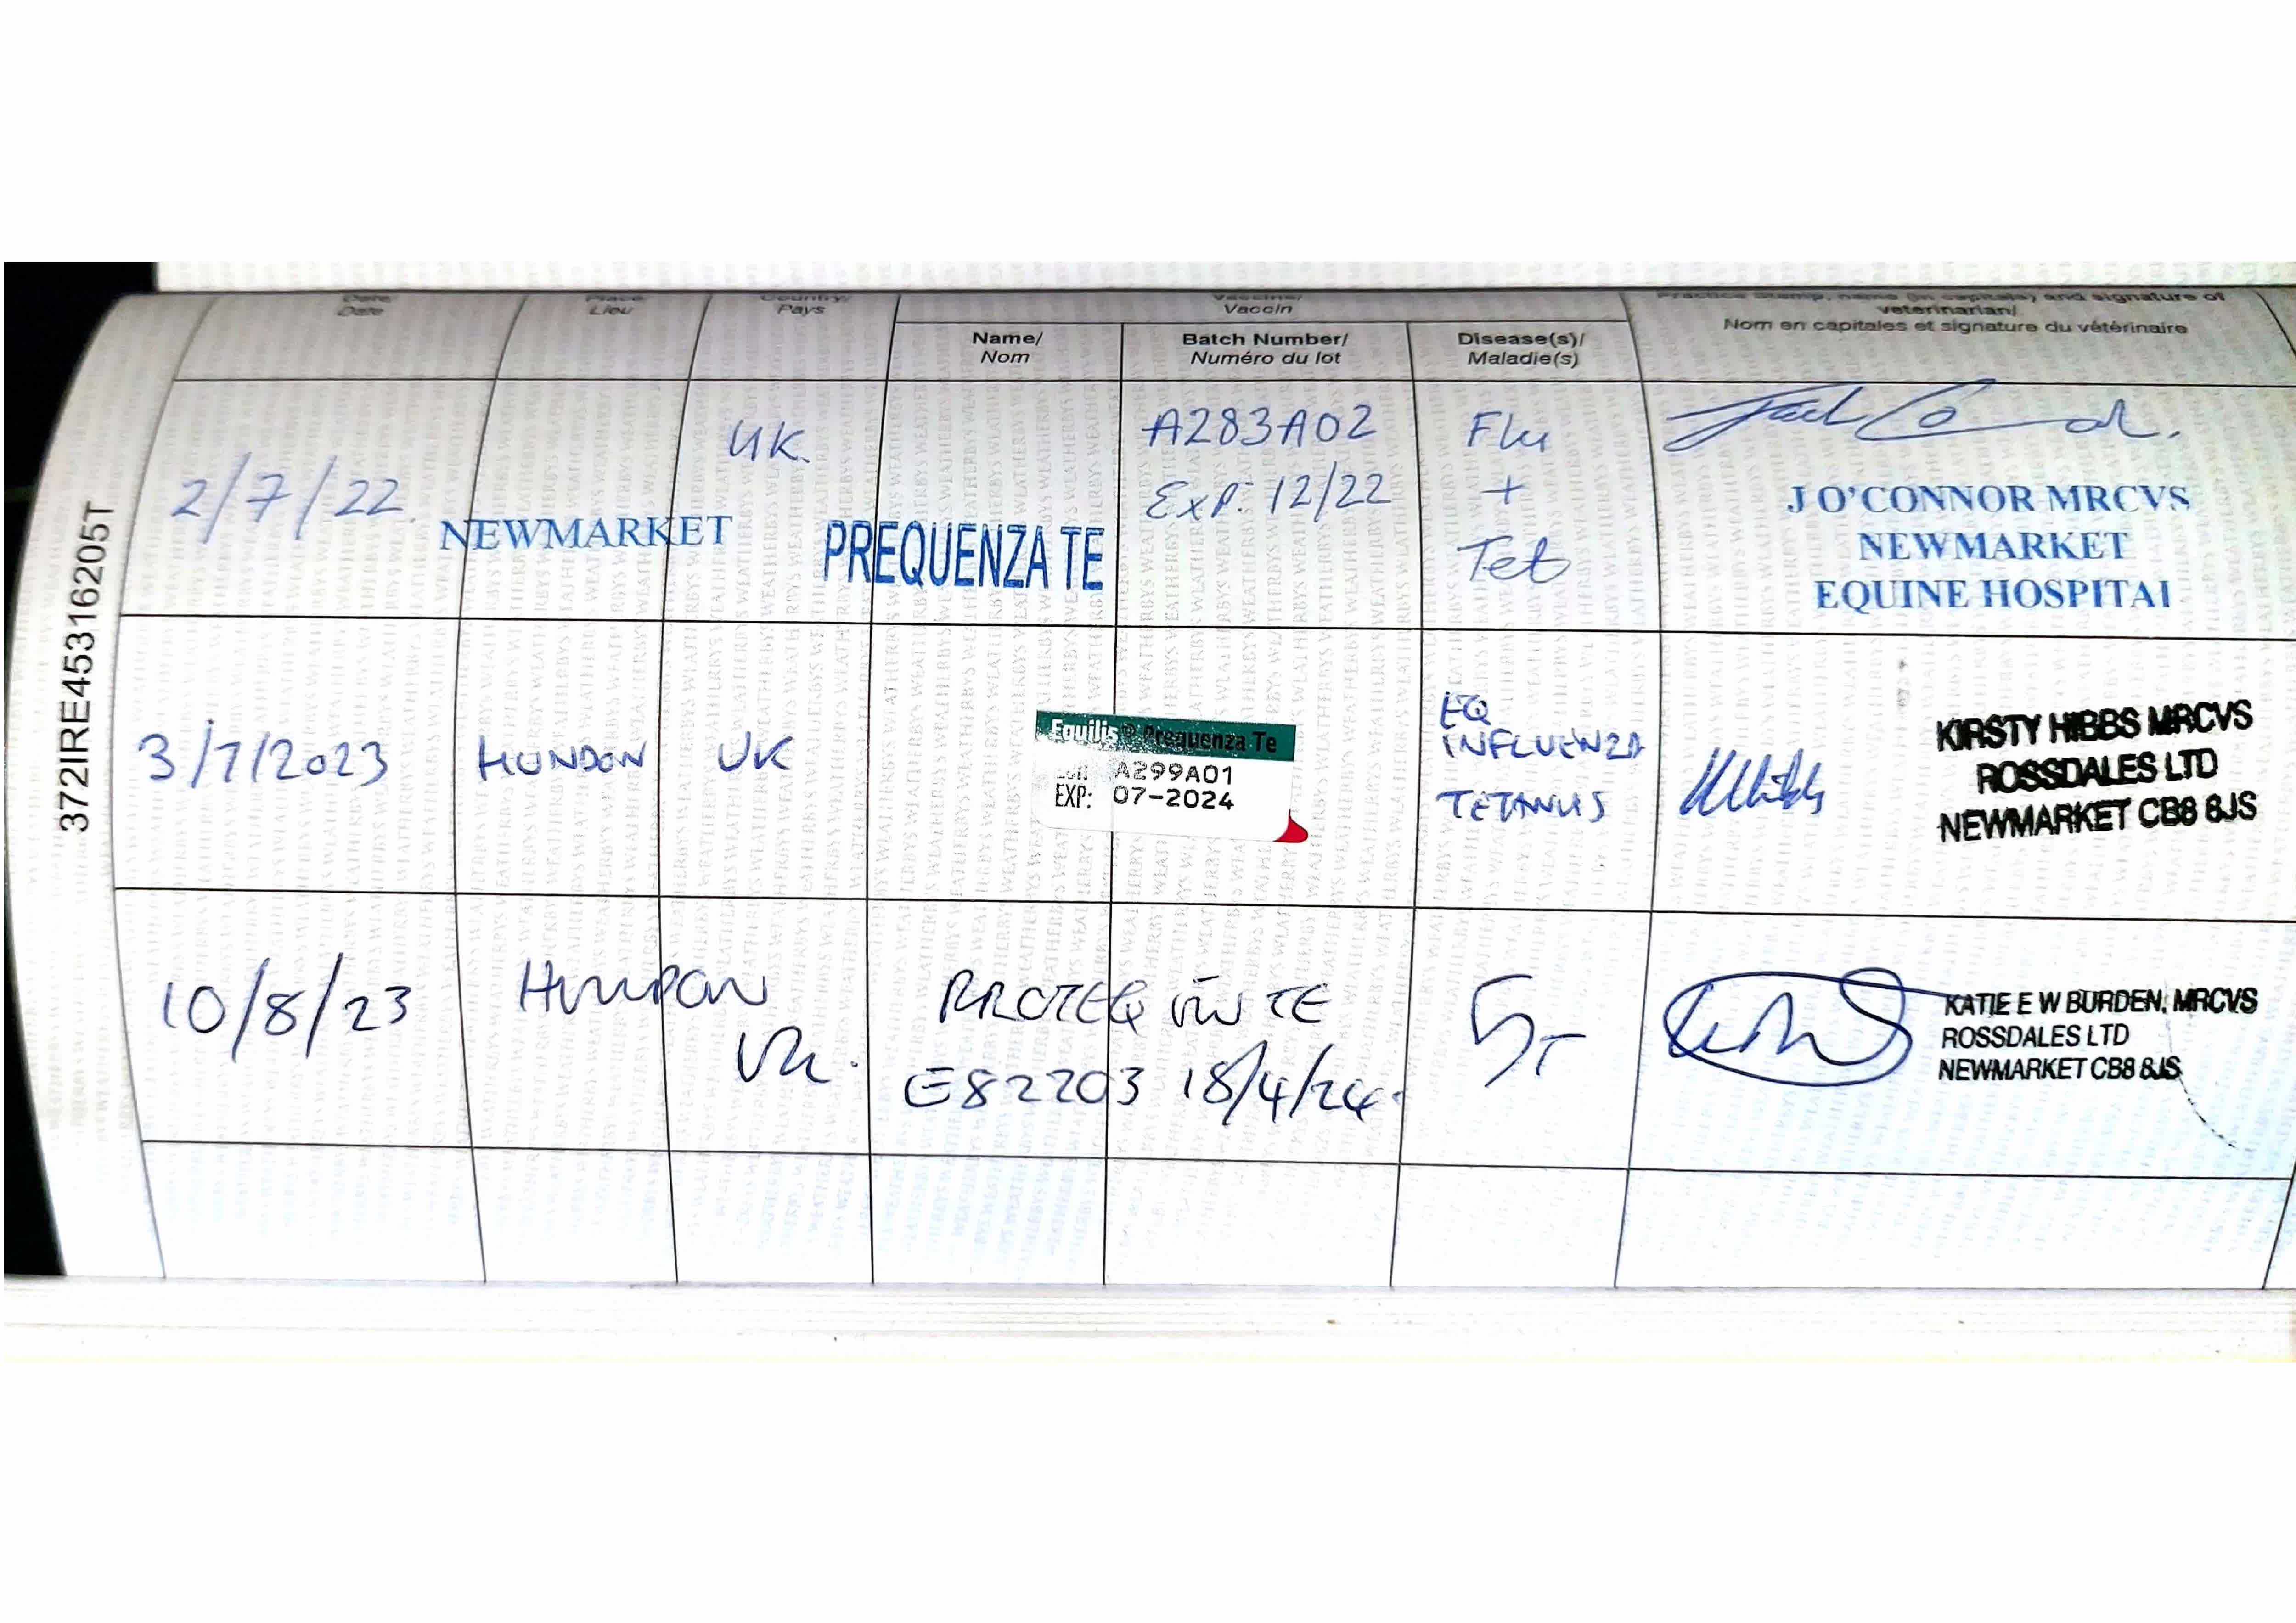 372IRE45316205T
Date/
Date
Place/
Lieu
Country/
Pays
Vaccine/
Vaccin
Name/
Nom
Batch Number/
Numéro du lot
Disease(s)/
Maladie(s)
Practice stamp, name (in capitals) and signature of
veterinarian/
Nom en capitales et signature du vétérinaire
2/7/22.
NEWMARKET
UK.
PREQUENZA TE
A283A02
Exp: 12/22
Flu
+
Tet
J O'CONNOR MRCVS
NEWMARKET
EQUINE HOSPITAL
3/7/2023
HUNDON
UK
Equilis® Prequenza Te
A299A01
EXP: 07-2024
EQ
INFLUENZA
TETANUS
KIRSTY HIBBS MRCVS
ROSSDALES LTD
NEWMARKET CB8 8JS
10/8/23
HUNDON
UK.
PROTEQ FLU TE
E82203 18/4/24.
KATIE E W BURDEN, MRCVS
ROSSDALES LTD
NEWMARKET CB8 8JS